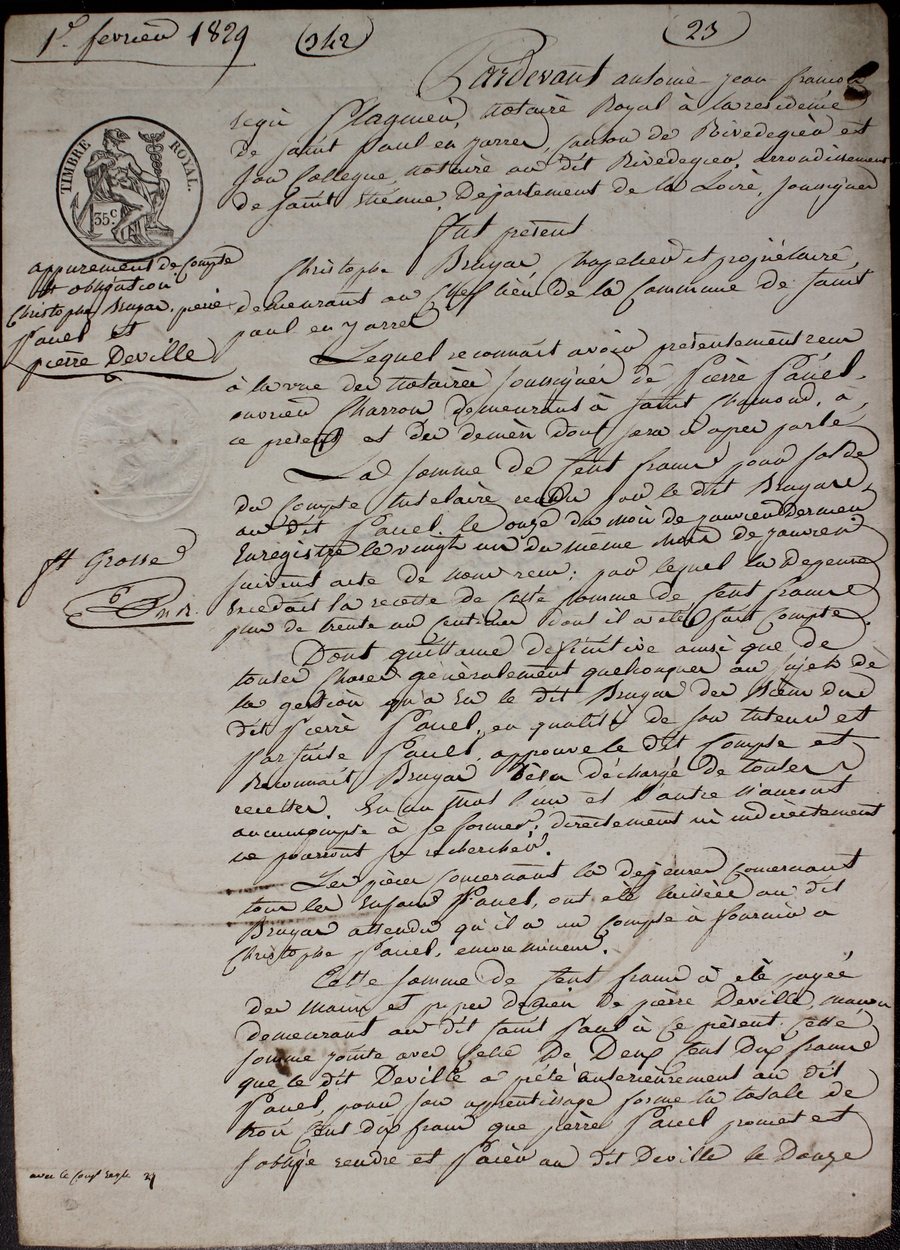 1er fevrier 1829
342
23
TIMBRE ROYAL.
35c
appurement de Compte
et obligation
Christophe Bruyar, pierre
Pauel et
pierre Deville
ft Grosse
Pardevant antoine jean francois
regis Plagnieu, notaire Royal à la residence
de saint Paul en jarret, canton de Rivedegier et
son Collegue, notaire au dit Rivedegier, arrondissement
de saint Etienne, Departement de la Loire, soussignes
fut present
Christophe Bruyar Chapelier et propriétaire,
demeurant au Chef lieu de la Commune de saint
paul en jarret
Lequel reconnait avoir presentement recu
à la vue des notaires soussignés de Pierre Pauel,
ouvrier Charron demeurant à saint Chamond, à
ce present et des deniers dont sera ci apres parlé
La somme de Cent francs pour solde
du Compte tutelaire rendu par le dit Bruyar,
au dit Pauel le onze du mois de janvier dernier
Enregistre le vingt un du même mois de janvier
suivant acte de nous recu; par lequel la Depense
Excedait la recette de Cette somme de Cent francs
plus de trente un Centimes dont il a été fait Compte.
Dont quittance definitive ainsi que de
toutes Choses généralement quelconques au sujet de
la gestion qu'a Eu le dit Bruyar des Biens du
dit Pierre Pauel, en qualité de son tuteur et
Par suite Pauel, approuve le dit Compte et
Reconnait Bruyar Bien déchargé de toutes
recettes. En un mot l'un et l'autre n'auront
aucun compte à se former, directement ni indirectement
ne pourront se rechercher.
Les pièces Concernant la depense Concernant
tous les Enfans Pauel, ont été laissées au dit
Bruyar attendu qu'il a un Compte à fournir a
Christophe Pauel, encore mineur.
Cette somme de Cent francs à été payée
des mains et propres deniers de pierre Deville, macon
demeurant au dit saint Paul à Ce présent. Cette
somme jointe avec Celle de Deux Cent Dix francs
que le dit Deville a prété anterieurement au dit
Pauel, pour son apprentissage forme la totale de
trois Cent dix francs que pierre Pauel promet et
s'oblige rendre et Paier au dit Deville le Douze